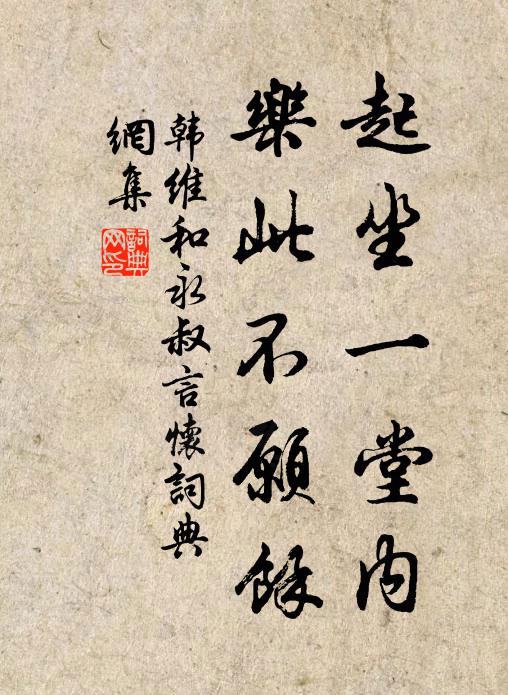 起坐一堂内
樂此不願餘
韩维和永叔言懷詞典
網集
詞典
网印